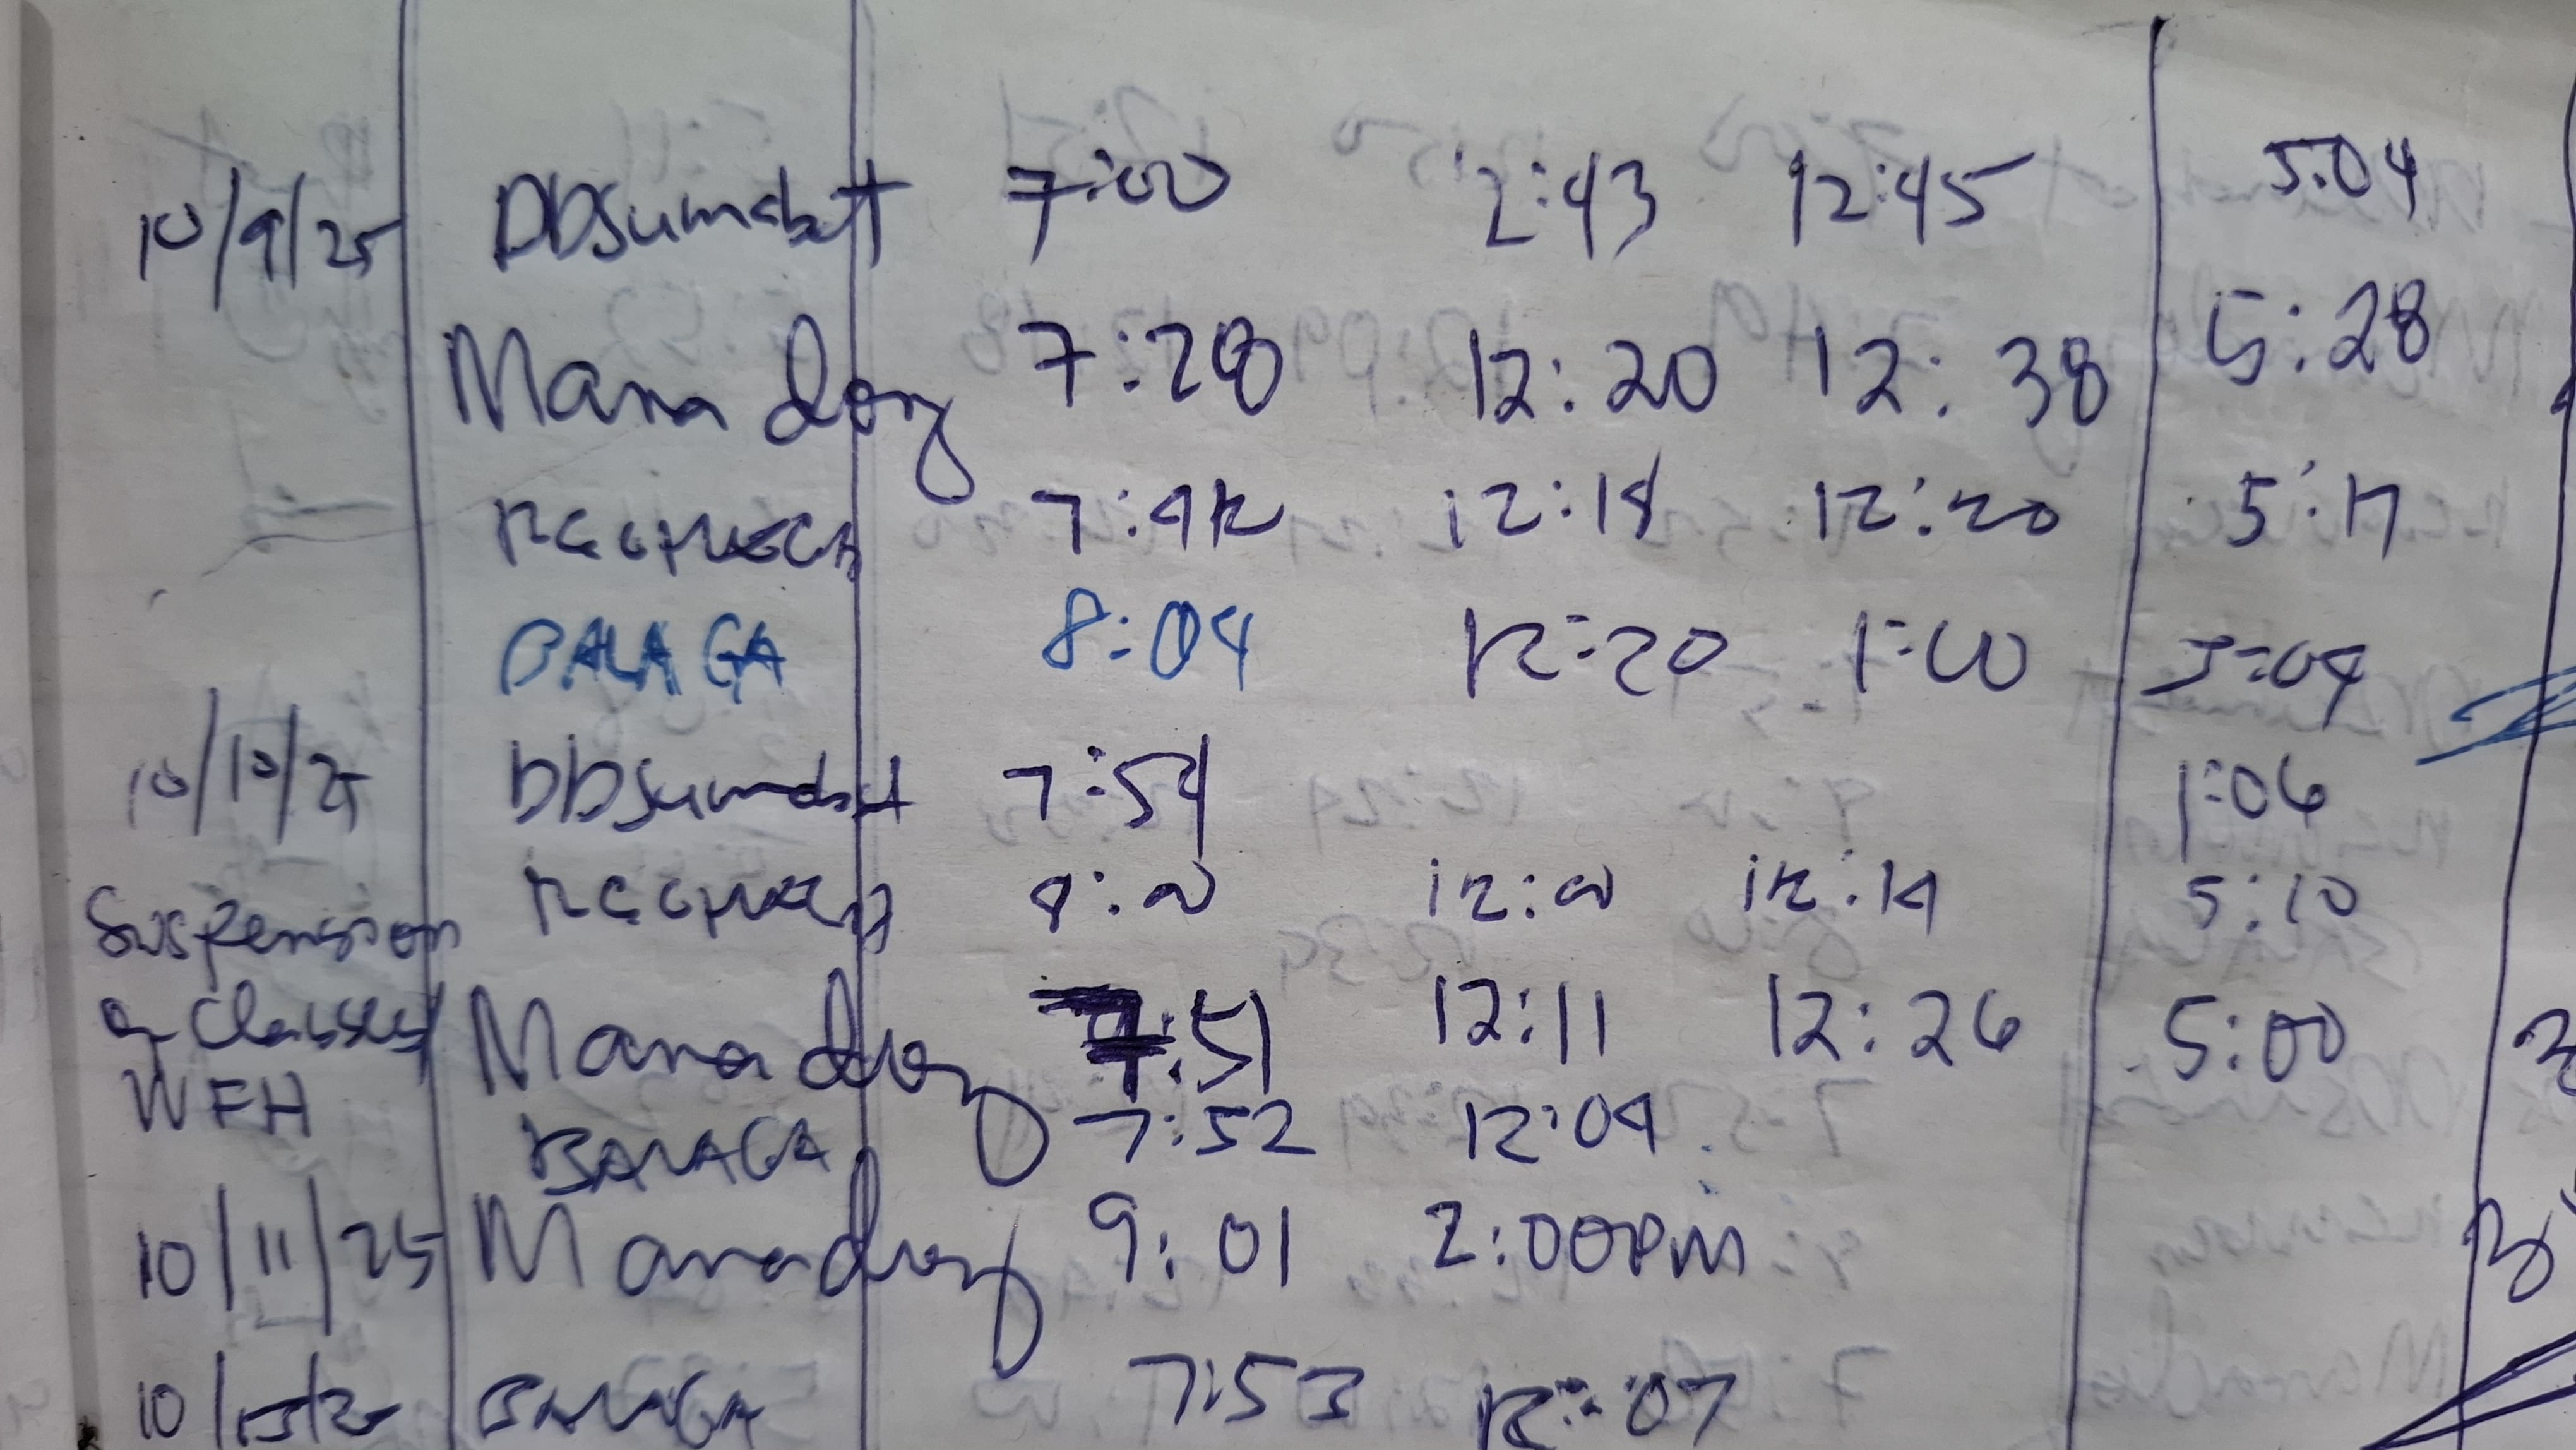 10/9/25 DDSumabat 7:00 12:43 12:45 5:04
Manadong 7:28 12:20 12:38 5:28
12:18 12:20 5:17
BALAGA 8:04 12:20 1:00 5:04
10/10/25 DDSumabat 7:54 1:06
12:14 5:10
Suspension of Classes/ WFH
Manadong 7:51 12:11 12:26 5:00
BALAGA 7:52 12:04
10/11/25 Manadong 9:01 2:00PM
BALAGA 7:53 12:07